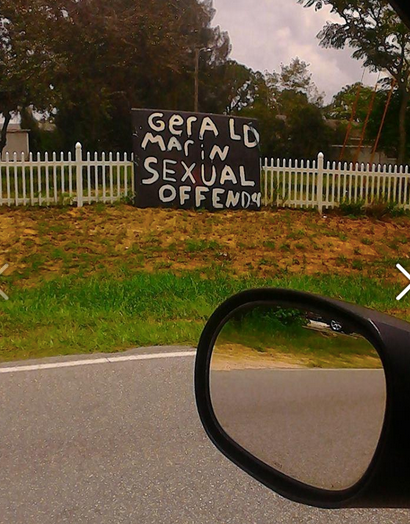 GerA LD
MAriN
SEXUAL
OFFENDR